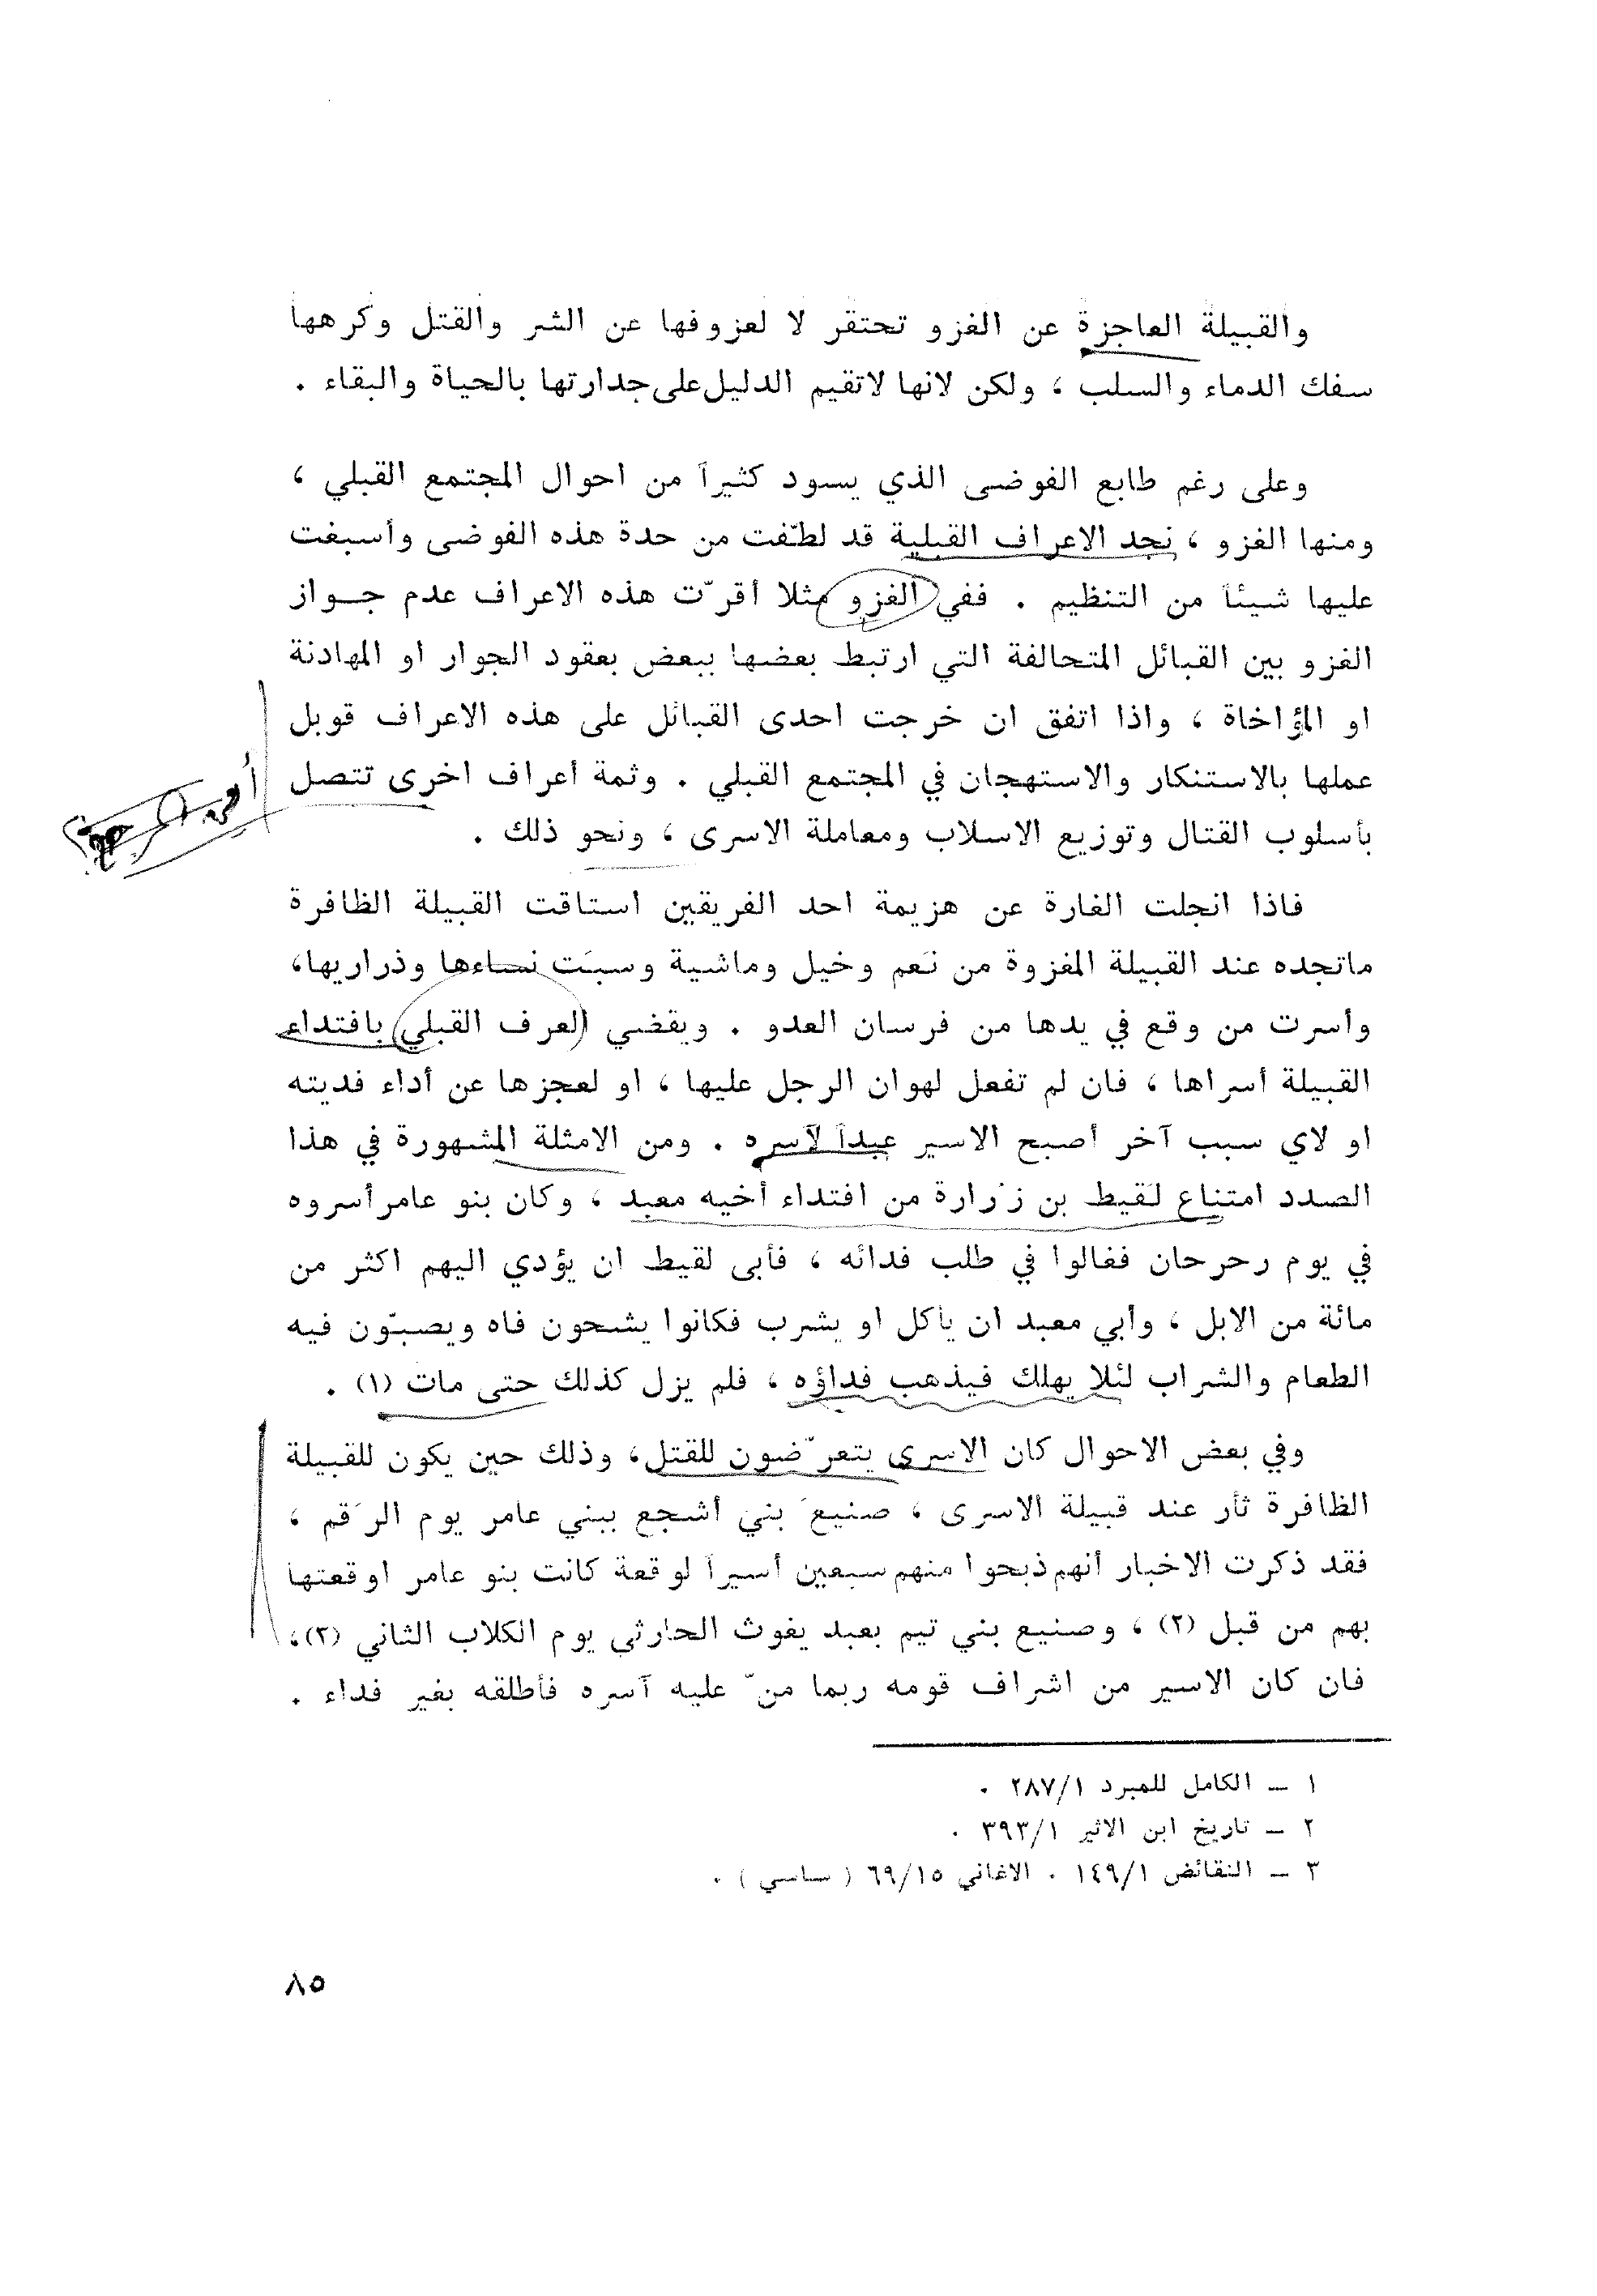 والقبيلة العاجزة عن الغزو تحتقر لا لعزوفها عن الشر والقتل وكرهها
سفك الدماء والسلب ، ولكن لانها لاتقيم الدليل على جدارتها بالحياة والبقاء .
وعلى رغم طابع الفوضى الذي يسود كثيراً من احوال المجتمع القبلي ،
ومنها الغزو ، نجد الاعراف القبلية قد لطّفت من حدة هذه الفوضى وأسبغت
عليها شيئاً من التنظيم . ففي الغزو مثلا أقرّت هذه الاعراف عدم جـواز
الغزو بين القبائل المتحالفة التي ارتبط بعضها ببعض بعقود الجوار او المهادنة
او المؤاخاة ، واذا اتفق ان خرجت احدى القبائل على هذه الاعراف قوبل
عملها بالاستنكار والاستهجان في المجتمع القبلي . وثمة أعراف اخرى تتصل
بأسلوب القتال وتوزيع الاسلاب ومعاملة الاسرى ، ونحو ذلك .
فاذا انجلت الغارة عن هزيمة احد الفريقين استاقت القبيلة الظافرة
ماتجده عند القبيلة المغزوة من نَعم وخيل وماشية وسبَت نساءها وذراريها،
وأسرت من وقع في يدها من فرسان العدو . ويقضي العرف القبلي بافتداء
القبيلة أسراها ، فان لم تفعل لهوان الرجل عليها ، او لعجزها عن أداء فديته
او لاي سبب آخر أصبح الاسير عبداً لآسره . ومن الامثلة المشهورة في هذا
الصدد امتناع لَقيط بن زُرارة من افتداء أخيه معبد ، وكان بنو عامر أسروه
في يوم رحرحان فغالوا في طلب فدائه ، فأبى لقيط ان يؤدي اليهم اكثر من
مائة من الابل ، وأبي معبد ان يأكل او يشرب فكانوا يشحون فاه ويصبّون فيه
الطعام والشراب لئلا يهلك فيذهب فداؤه ، فلم يزل كذلك حتى مات (١) .
وفي بعض الاحوال كان الاسرى يتعرّضون للقتل، وذلك حين يكون للقبيلة
الظافرة ثأر عند قبيلة الاسرى ، صنيعَ بني أشجع ببني عامر يوم الرَقم ،
فقد ذكرت الاخبار أنهم ذبحوا منهم سبعين أسيراً لوقعة كانت بنو عامر اوقعتها
بهم من قبل (٢) ، وصنيع بني تيم بعبد يغوث الحارثي يوم الكلاب الثاني (٣)،
فان كان الاسير من اشراف قومه ربما منّ عليه آسره فأطلقه بغير فداء .
١ ــ الكامل للمبرد ٢٨٧/١ .
٢ ــ تاريخ ابن الاثير ٣٩٣/١ .
٣ ــ النقائض ١٤٩/١ . الاغاني ٦٩/١٥ ( ساسي ) .
٨٥